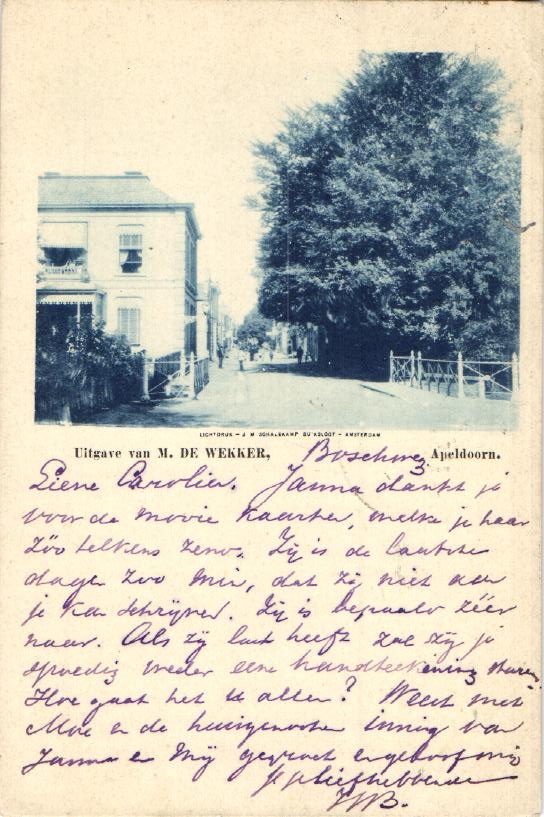 LICHTDRUK - J. M. SCHALEKAMP BUIKSLOOT - AMSTERDAM
Uitgave van M. DE WEKKER, Boschweg Apeldoorn.
Lieve Carolien. Janna dankt je
voor de mooie kaarten, welke je haar
zóó telkens zend. Zij is de laatste
dagen zoo min, dat zij niet aan
je kan schrijven. Zij is bepaald zéér
naar. Als zij lust heeft zal zij je
spoedig weder eene handteekening sturen.
Hoe gaat het U allen? Weest met
Moe en de huisgenooten innig van
Janna en mij gegroet en geloof mij
je liefhebbende